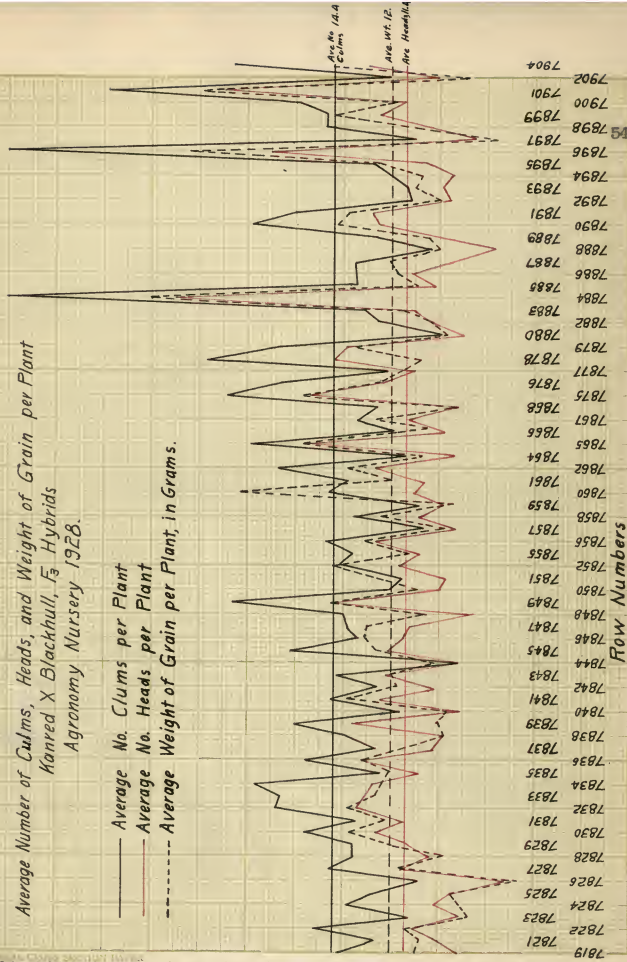 Average Number of Culms, Heads, and Weight of Grain per Plant
Kanred X Blackhull, F3 Hybrids
Agronomy Nursery 1928.
Average No. Clums per Plant
Average No. Heads per Plant
Average Weight of Grain per Plant, in Grams.
Ave No 14.4
Culms
Ave. Wt. 12.
Ave Heads
54
7819
7821
7822
7823
7824
7825
7826
7827
7828
7829
7830
7831
7832
7833
7834
7835
7836
7837
7838
7839
7840
7841
7842
7843
7844
7845
7846
7847
7848
7849
7850
7851
7852
7855
7856
7857
7858
7859
7860
7861
7862
7864
7865
7866
7867
7868
7875
7876
7877
7878
7879
7880
7882
7883
7884
7885
7886
7887
7888
7889
7890
7891
7892
7893
7894
7895
7896
7897
7898
7899
7900
7901
7902
7904
Row Numbers